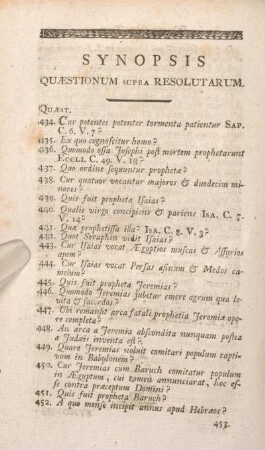 SYNOPSIS
QUÆSTIONUM SUPRA RESOLUTARUM.
QUÆST.
434. Cur potentes potenter tormenta patientur SAP.
C. 6. V. 7?
435. Ex quo cognoscitur homo?
436. Quomodo ossa Josephi post mortem prophetarunt
ECCLI. C. 49. V. 18?
437. Quo ordine sequuntur prophetæ?
438. Cur quatuor vocantur majores & duodecim mi-
nores?
439. Quis fuit propheta Isaias?
440. Qualis virgo concipiens & pariens ISA. C. 7.
V. 14?
441. Quæ prophetissa illa? ISA. C. 8. V. 3?
442. Quot Seraphim vidit Isaias?
443. Cur Isaias vocat Ægyptios muscas & Assyrios
apem?
444. Cur Isaias vocat Persas asinum & Medos ca-
melum?
445. Quis fuit propheta Jeremias?
446. Quomodo Jeremias jubetur emere agrum qua le-
vita & sacerdos?
447. Ubi remansit arca fatali prophetia Jeremiæ op-
pere completa?
448. An arca a Jeremia abscondita nunquam postea
a Judæis inventa est?
449. Quare Jeremias voluit comitari populum capti-
vum in Babylonem?
450. Cur Jeremias cum Baruch comitatur populum
in Ægyptum, cui tamen annunciarat, hoc es-
se contra præceptum Domini?
451. Quis fuit propheta Baruch?
452. A quo mense incipit annus apud Hebræos?
453.